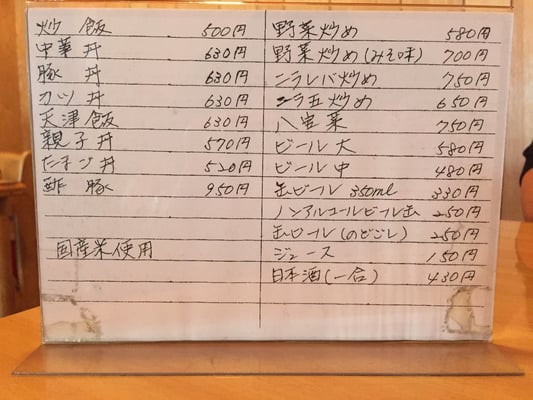 炒飯 500円
中華丼 630円
豚丼 630円
カツ丼 630円
天津飯 630円
親子丼 570円
たまご丼 520円
酢豚 950円
国産米使用
野菜炒め 580円
野菜炒め(みそ味) 700円
ニラレバ炒め 750円
ニラ玉炒め 650円
八宝菜 750円
ビール大 580円
ビール中 480円
缶ビール 350ml 330円
ノンアルコールビール缶 250円
缶ビール(のどごし) 250円
ジュース 150円
日本酒(一合) 430円